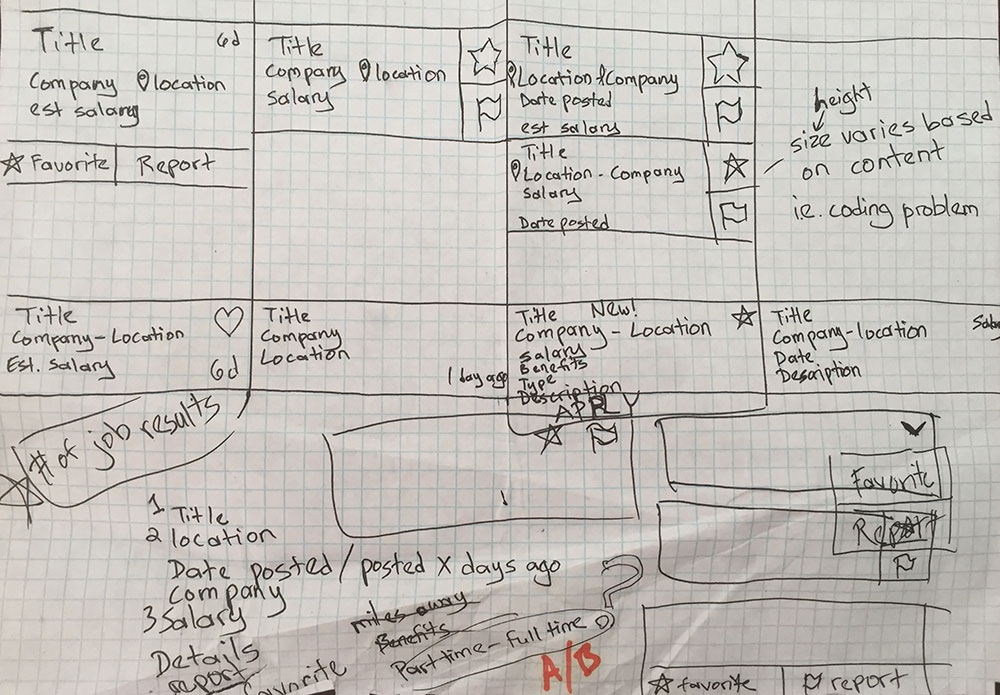 Title 6d
Company location
est salary
Favorite Report
Title
Company location
Salary
Title
Location Company
Date posted
est salary
Title
Location - Company
Salary
Date posted
height
size varies based
on content
i.e. coding problem
Title
Company - Location
Est. Salary
6d
Title
Company
Location
1 day ago
Title New!
Company - Location
Salary
Benefits
Type
Description
Title
Company - location
Date
Description
# of job results
Favorite
Report
1 Title
2 location
Date posted / posted X days ago
Company
3 Salary
Details
report
favorite
miles away
Benefits
Part time - full time
?
A/B
favorite
report